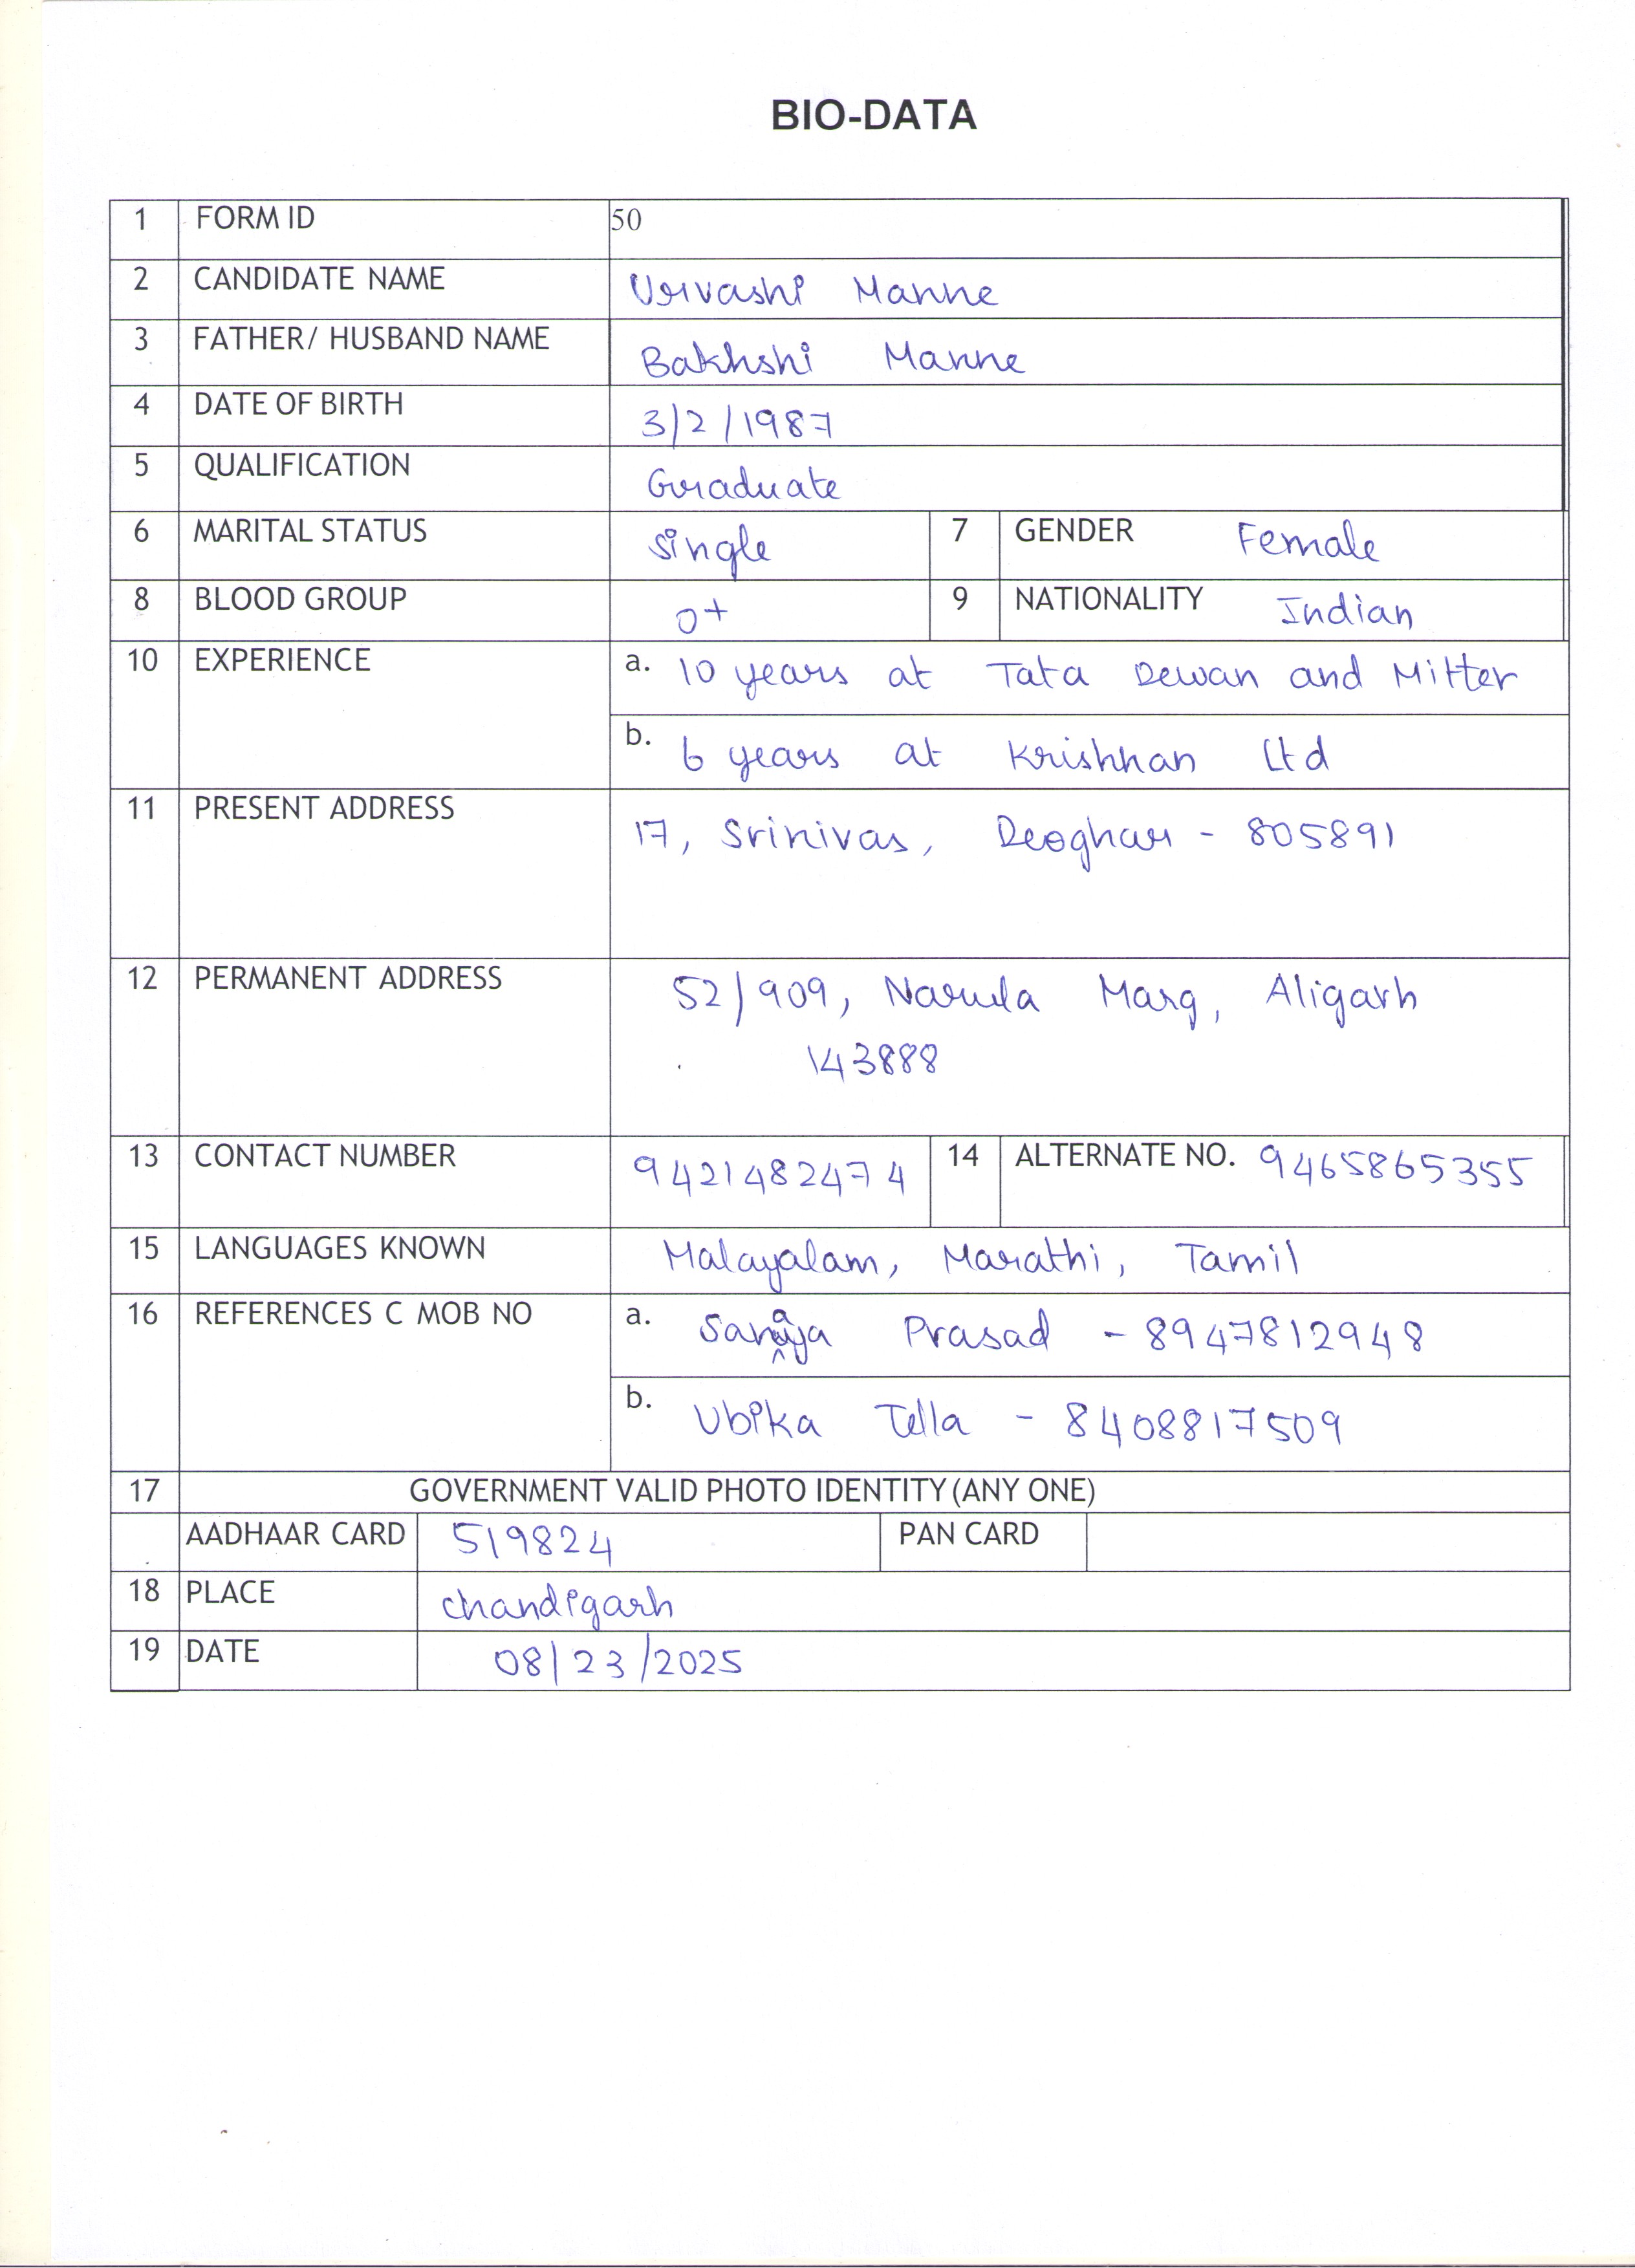 BIO-DATA
1 FORM ID 50
2 CANDIDATE NAME Urvashi Manne
3 FATHER/ HUSBAND NAME Bakhshi Manne
4 DATE OF BIRTH 3/2/1987
5 QUALIFICATION Graduate
6 MARITAL STATUS single 7 GENDER Female
8 BLOOD GROUP O+ 9 NATIONALITY Indian
10 EXPERIENCE a. 10 years at Tata Dewan and Mitter
b. 6 years at Krishnan Ltd
11 PRESENT ADDRESS 17, Srinivas, Deoghar - 805891
12 PERMANENT ADDRESS 52/909, Narula Marg, Aligarh
143888
13 CONTACT NUMBER 9421482474 14 ALTERNATE NO. 9465865355
15 LANGUAGES KNOWN Malayalam, Marathi, Tamil
16 REFERENCES C MOB NO a. Prasad - 8947812948
b. Ubika Tella - 8408817509
17 GOVERNMENT VALID PHOTO IDENTITY (ANY ONE)
AADHAAR CARD 519824 PAN CARD
18 PLACE chandigarh
19 DATE 08/23/2025